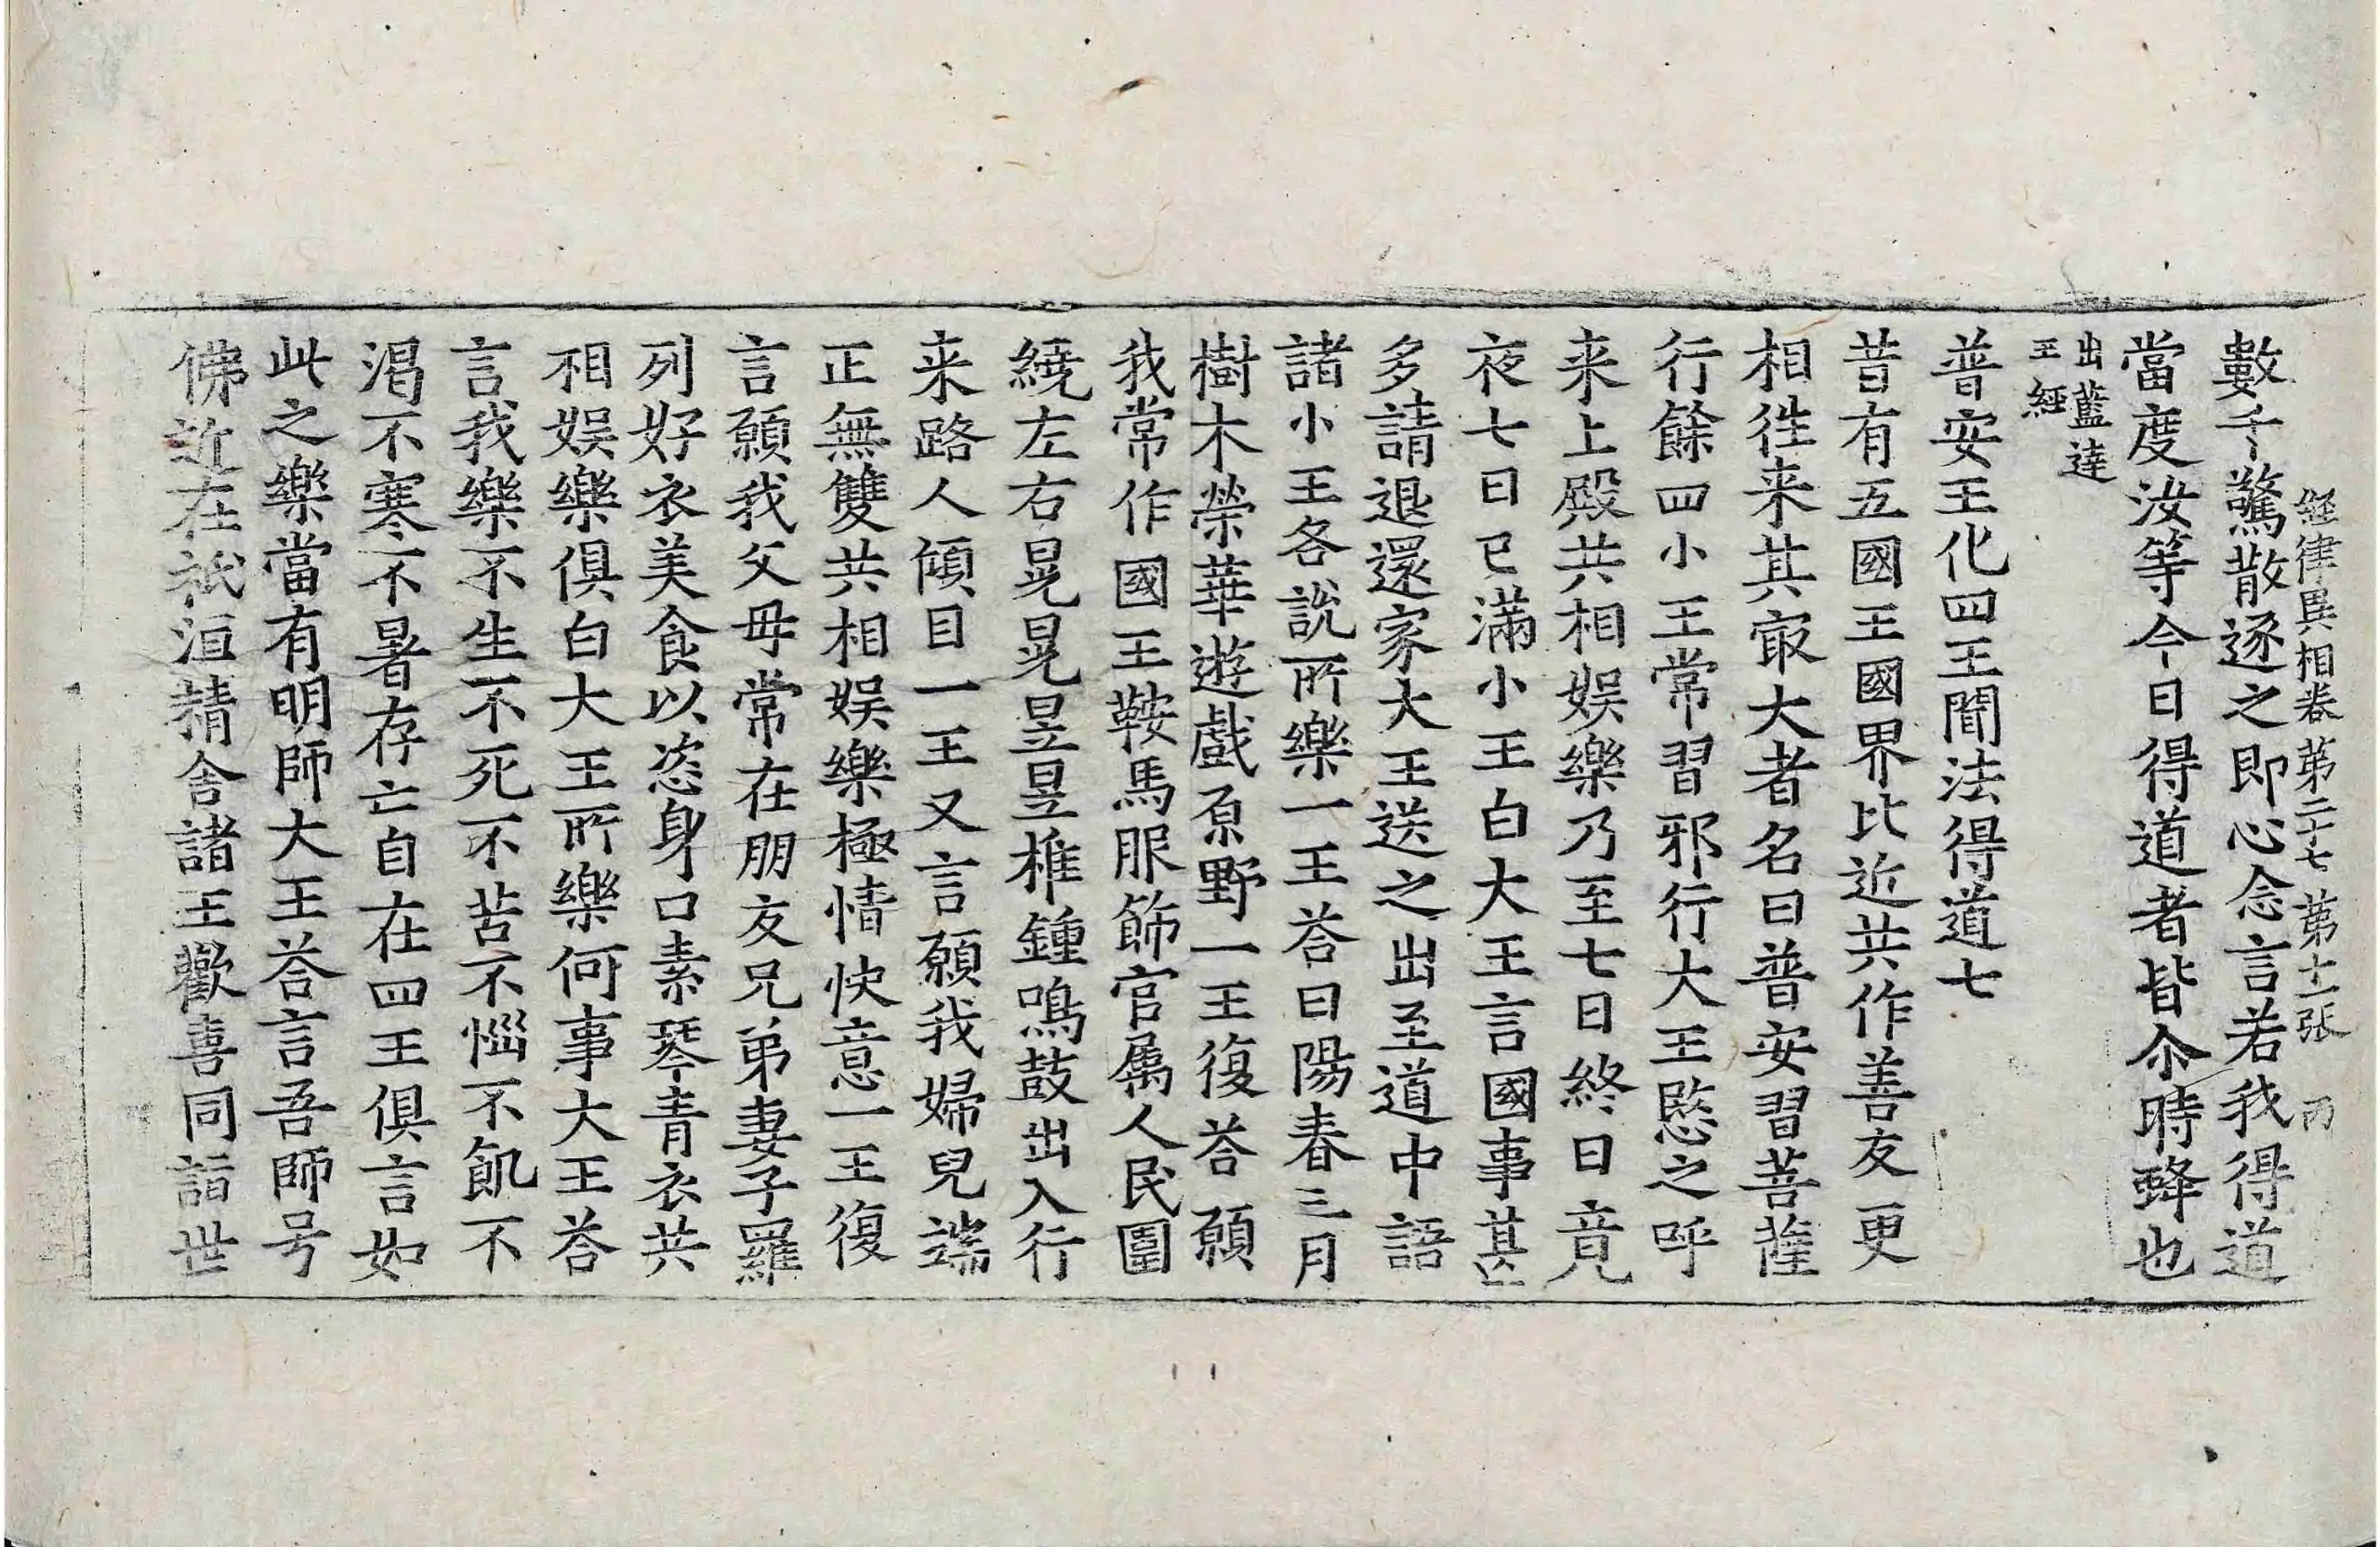 經律異相卷第二十七 第十一張 丙
數千驚散逐之即心念言若我得道
當度汝等今日得道者皆尒時蜂也
出藍達
王經
普安王化四王聞法得道七
昔有五國王國界比近共作善友更
相往来其㝡大者名曰普安習菩薩
行餘四小王常習邪行大王愍之呼
来上殿共相娱樂乃至七日終日竟
夜七日已滿小王白大王言國事甚
多請退還家大王送之出至道中語
諸小王各說所樂一王荅曰陽春三月
樹木榮華遊戲原野一王復荅願
我常作國王鞍馬服飾官属人民圍
繞左右晃晃昱昱椎鍾鳴鼓出入行
来路人傾目一王又言願我婦兒端
正無雙共相娱樂極情快意一王復
言願我父母常在朋友兄弟妻子羅
列好衣美食以恣身口素琴青衣共
相娱樂俱白大王所樂何事大王荅
言我樂不生不死不苦不惱不飢不
渴不寒不暑存亡自在四王俱言如
此之樂當有明師大王荅言吾師号
佛近在祇洹精舍諸王歡喜同詣世